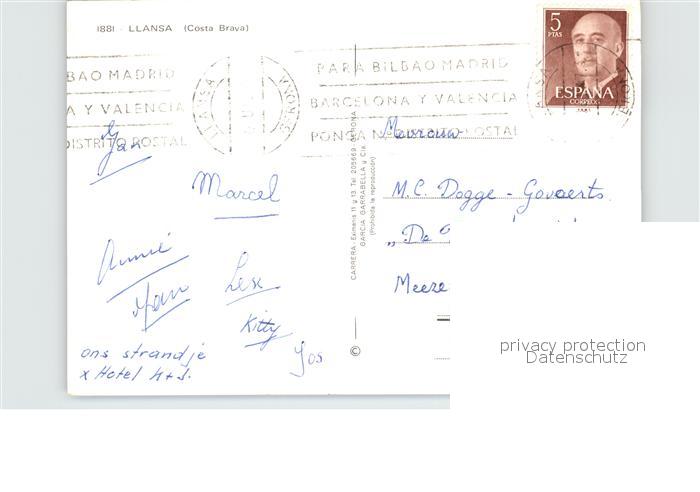 1881 - LLANSA (Costa Brava)
5
PTAS
ESPAÑA
CORREOS
BAO MADRID
A Y VALENCIA
DISTRITO POSTAL
LLANSA
GERONA
PARA BILBAO MADRID
BARCELONA Y VALENCIA
PONGA Nº DISTRITO POSTAL
Jan
Marcel
Annie
Lex
Kitty
Jos
ons strandje
x Hotel
CARRERA - Eximenis 11 y 13. Tel 205669 - GERONA
GARCIA GARRABELLA y Cía.
(Prohibida la reproducción)
©
Mevrouw
M.C. Dogge - Govaerts
"De
Meeze
privacy protection
Datenschutz